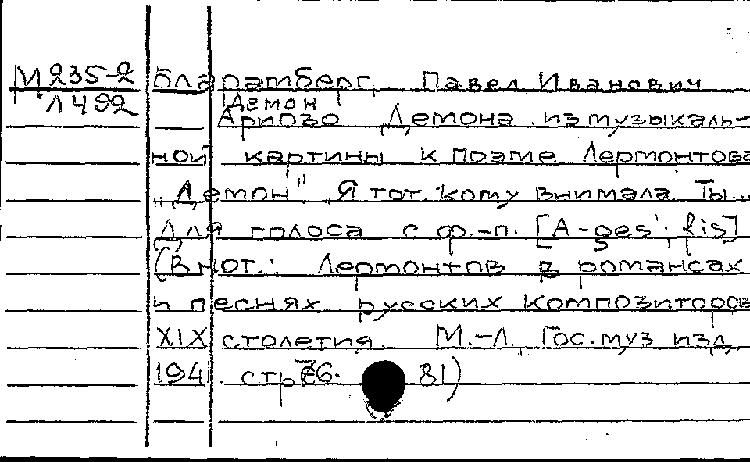 М 235-2 Бларамберг, Павел Иванович
Л 492 "Демон"
Ариозо Демона из музыкаль-
ной картины к поэме Лермонтова
"Демон" Я тот, кому внимала. Ты..
Для голоса с ф.-п. [A-ges'; fis]
(В нот.: Лермонтов в романсах
и песнях русских композиторов
XIX столетия. М.-Л., Гос. муз изд,
194 стр 81)